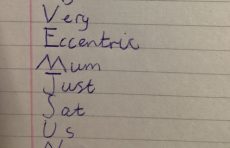 Very
Eccentric
Mum
Just
Sat
Us